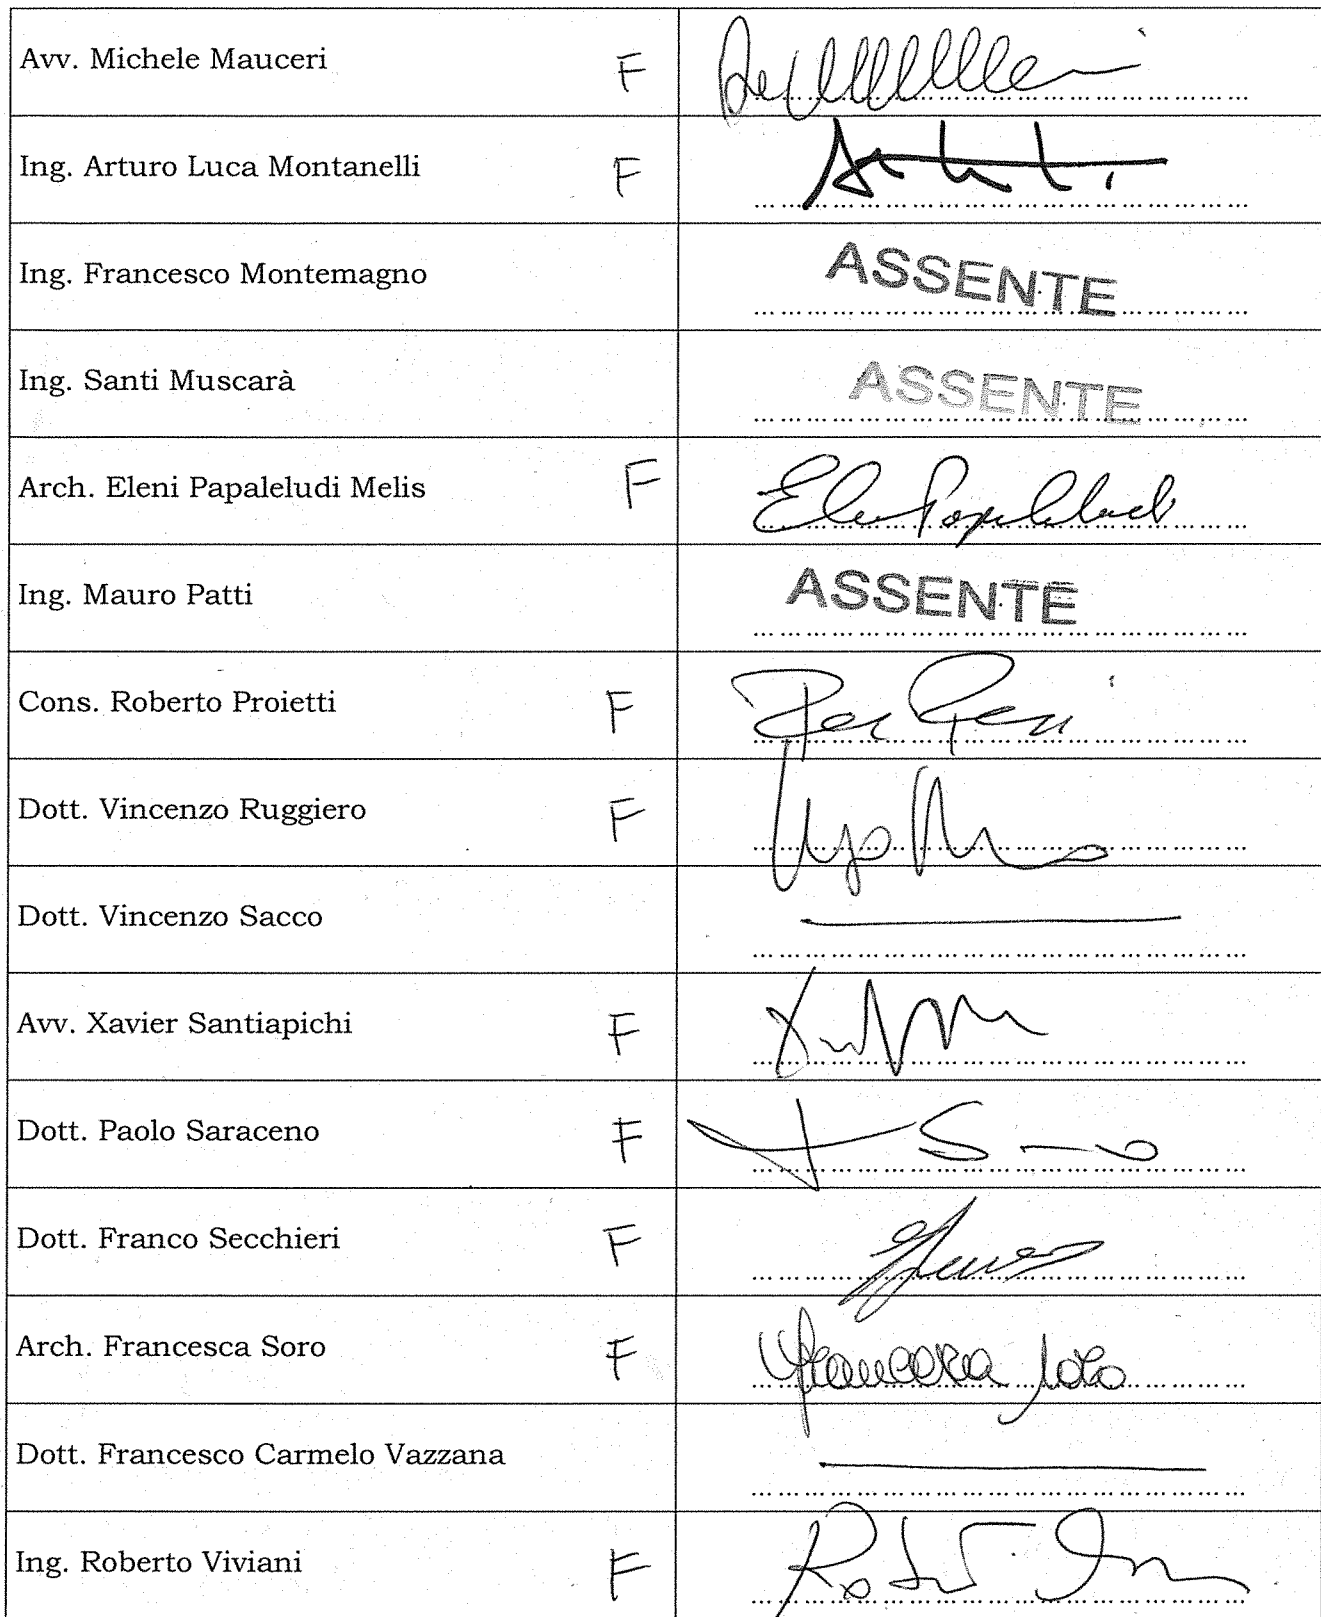 Avv. Michele Mauceri F
Ing. Arturo Luca Montanelli F
Ing. Francesco Montemagno ASSENTE
Ing. Santi Muscarà ASSENTE
Arch. Eleni Papaleludi Melis F
Ing. Mauro Patti ASSENTE
Cons. Roberto Proietti F
Dott. Vincenzo Ruggiero F
Dott. Vincenzo Sacco
Avv. Xavier Santiapichi F
Dott. Paolo Saraceno F
Dott. Franco Secchieri F
Arch. Francesca Soro F Francesca Soro
Dott. Francesco Carmelo Vazzana
Ing. Roberto Viviani F